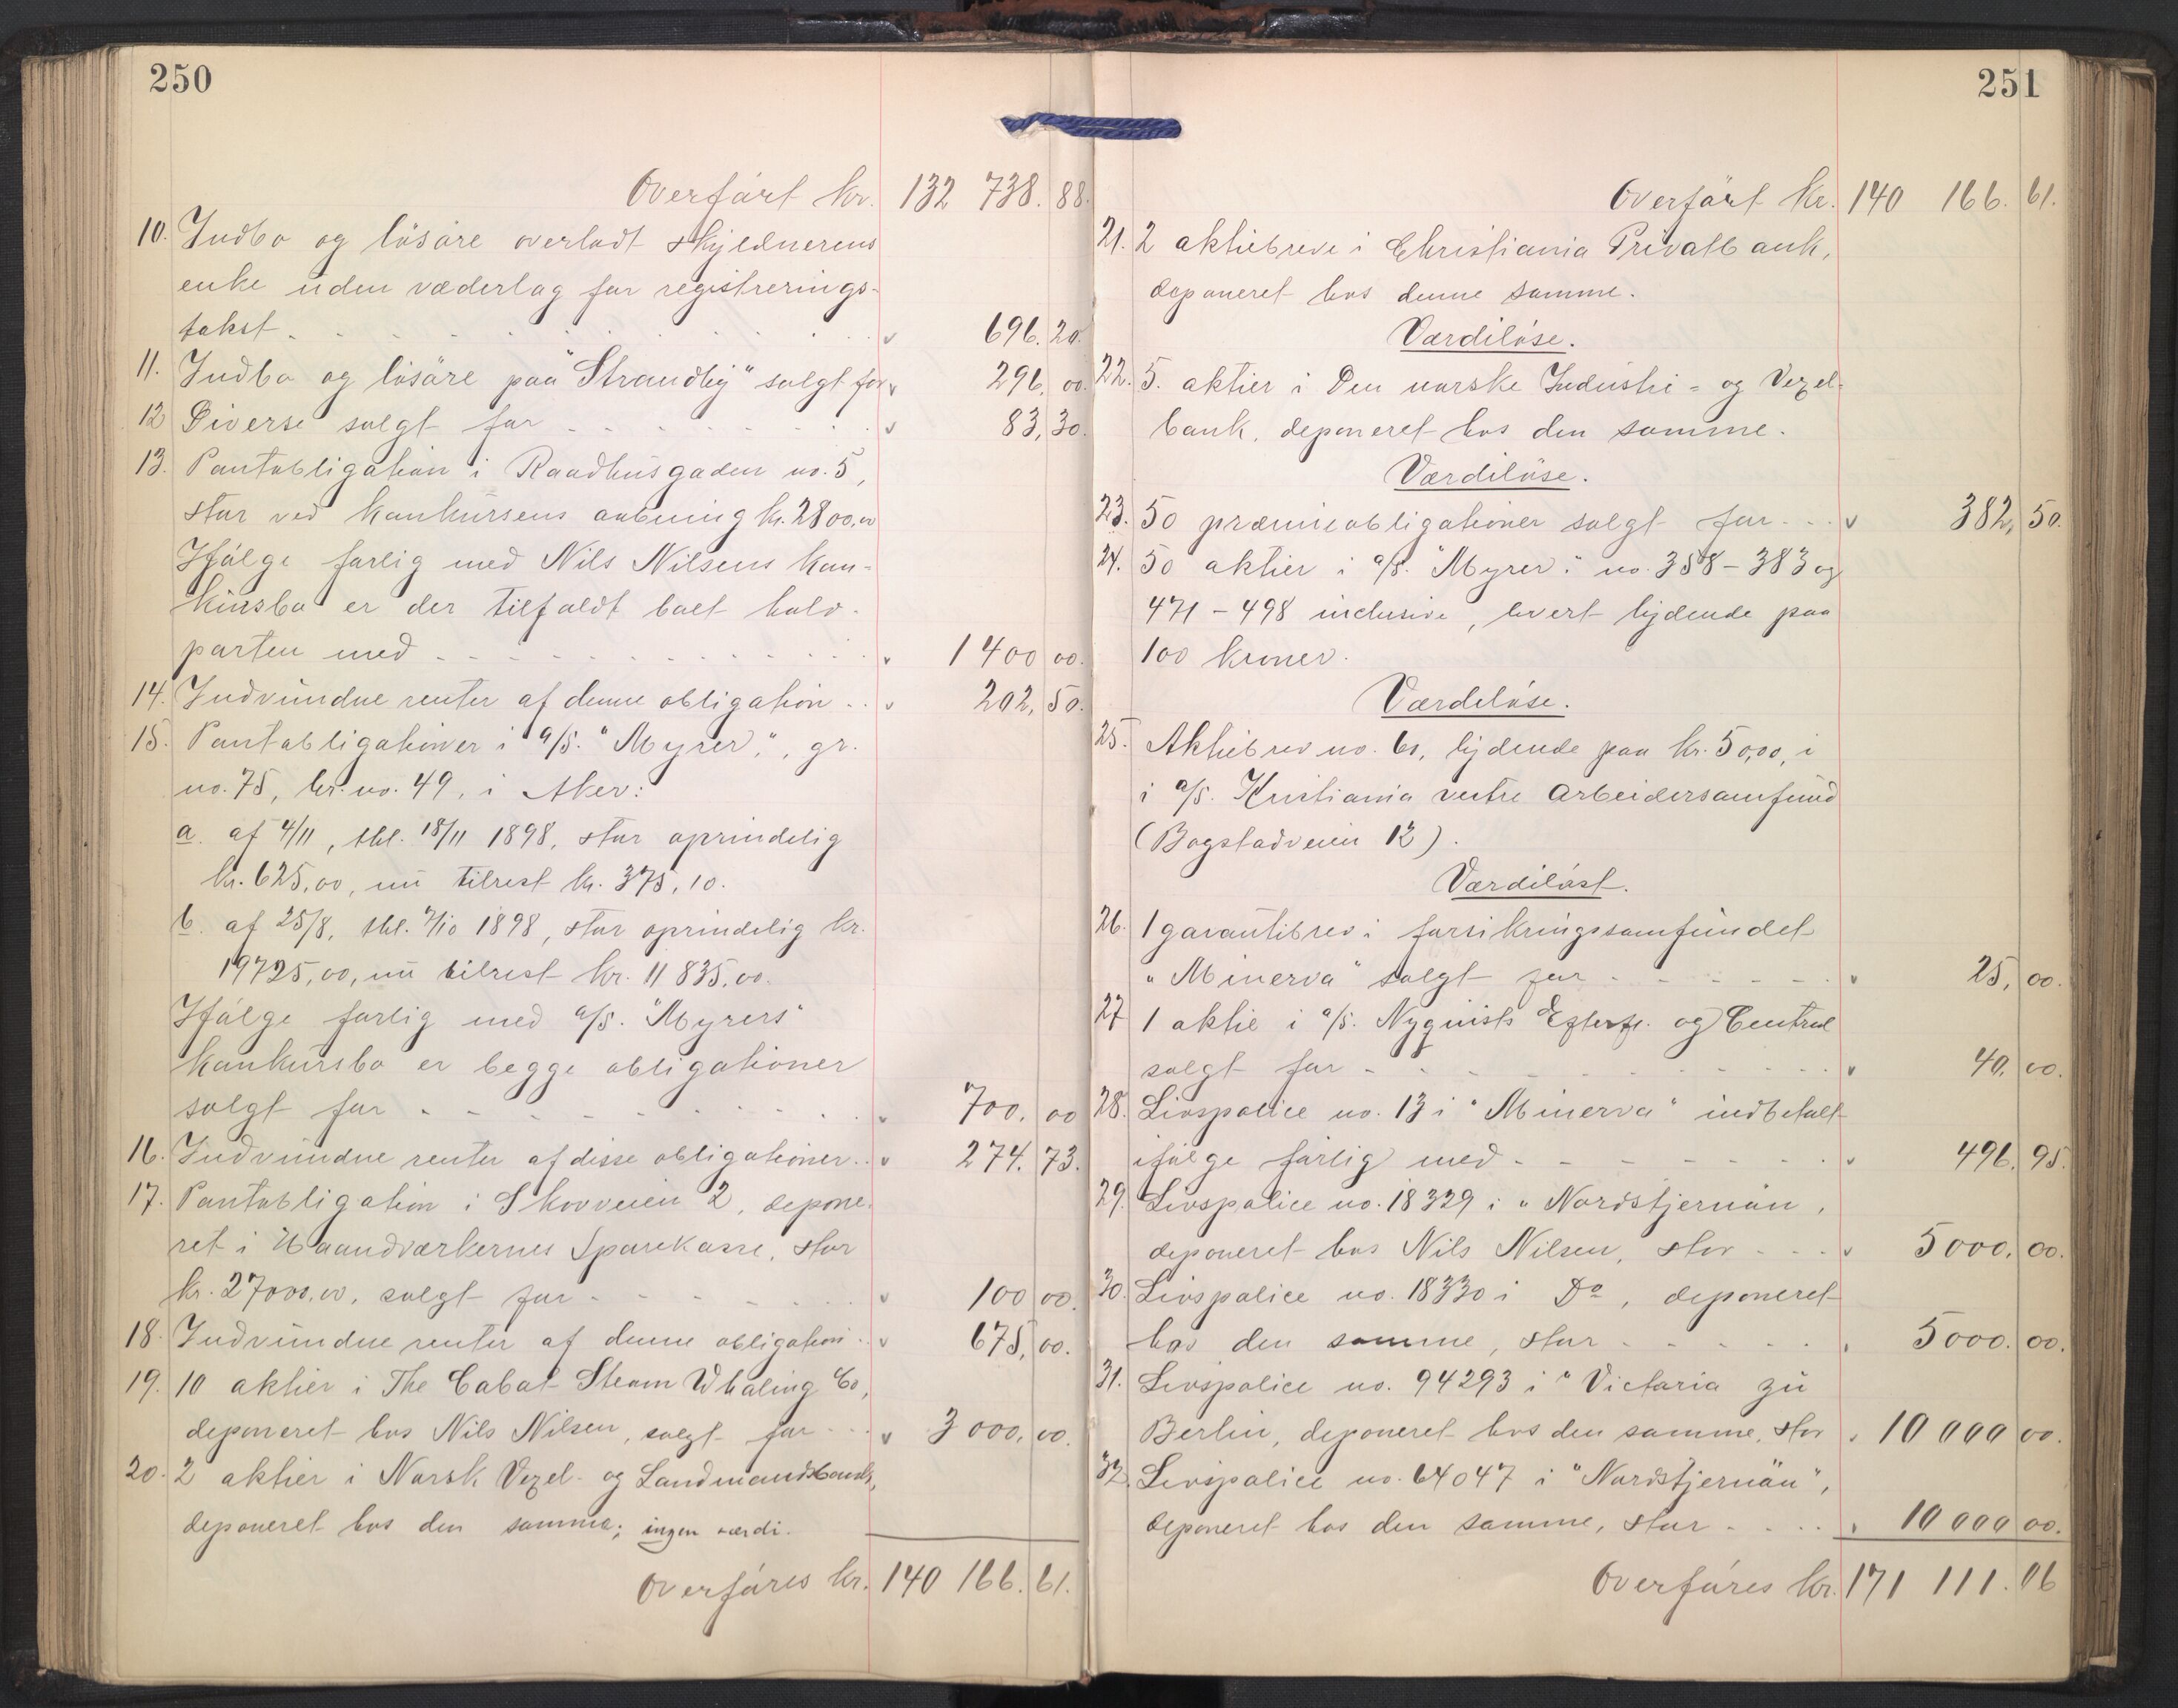 250
Overført kr. 132 738. 88.
10. Indbo og løsøre overladt skyldnerens
enke uden vederlag for registrerings-
takst - - - 696. 20.
11. Indbo og løsøre paa "Strandhøj" solgt for 296, 00.
12 Diverse solgt for - - - 83, 30.
13. Pantobligation i Raadhusgaden no. 5,
stor ved konkursens aabning kr. 2800,00
Ifølge forlig med Nils Nilsens kon-
kursbo er der tilfaldt boet halv-
parten med - - - 1 400 00.
14. Indvundne renter af denne obligation - - 202, 50.
15. Pantobligationer i a/s. "Myrer", gr.
no. 75, br. no. 49, i Aker:
a. af 4/11, thl. 18/11 1898, stor oprindelig
kr. 625,00, nu tilrest kr. 375,10.
b. af 25/8, thl. 7/10 1898, stor oprindelig kr.
19725,00, nu tilrest kr. 11 835,00.
Ifølge forlig med a/s. "Myrers"
konkursbo er begge obligationer
solgt for - - - 700. 00
16. Indvundne renter af disse obligationer - - 274. 73.
17. Pantobligation i Skovveien 2, depone-
ret i Haandværkernes Sparekasse, stor
kr. 27000,00, solgt for - - - 100 00.
18. Indvundne renter af denne obligation - - 675, 00.
19. 10 aktier i The Cabot Steam Whaling Co,
deponeret hos Nils Nilsen, solgt for - - 3 000, 00.
20. 2 aktier i Norsk Vexel- og Landmandsbank,
deponeret hos den samme; ingen værdi.
Overføres kr. 140 166. 61.
251
Overført kr. 140 166. 61.
21. 2 aktiebreve i Christiania Privatbank,
deponeret hos denne samme.
Værdiløse.
22. 5. aktier i Den norske Industri- og Vexel-
bank, deponeret hos den samme.
Værdiløse.
23. 50 præmieobligationer solgt for - - 382, 50.
24. 50 aktier i a/s. "Myrer" no. 358 - 383 og
471 - 498 inclusive, hvert lydende paa
100 kroner.
Værdiløse.
25. Aktiebrev no. 60, lydende paa kr. 50,00, i
i a/s. Kristiania vestre Arbeidersamfund
(Bogstadveien 12).
Værdiløst.
26. 1 garantibrev i forsikringssamfundet
"Minerva" solgt for - - - 25, 00.
27 1 aktie i a/s. Nyquists Efterf. og Central
solgt for - - - 40, 00.
28. Livspolice no. 13 i "Minerva" indbetalt
ifølge forlig med - - - 496, 95.
29. Livspolice no. 18329 i "Nordstjernan,
deponeret hos Nils Nilsen, stor - - 5 000, 00.
30. Livspolice no. 18330 i Do, deponeret
hos den samme, stor - - - 5 000. 00.
31. Livspolice no. 94293 i "Victoria zu
Berlin, deponeret hos den samme, stor 10 000 00.
32. Livspolice no. 64047 i "Nordstjernan",
deponeret hos den samme, stor - - - 10 000 00.
Overføres kr. 171 111. 06